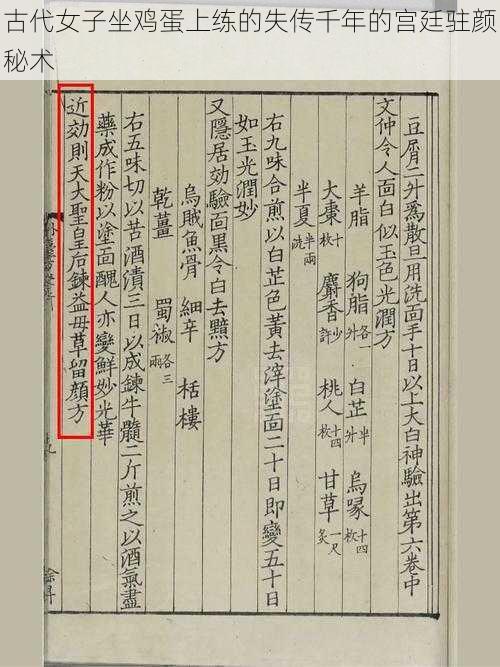 古代女子坐鸡蛋上练的失传千年的宫廷驻颜
秘术
豆屑二升為散旦用洗面手十日以上大白神驗出第六卷中
文仲令人面白似玉色光潤方
羊脂 狗脂各一升 白芷半升 烏喙十四枚
大棗十枚 麝香少許 桃人十四枚 甘草一尺炙
半夏半兩洗
右九味合煎以白芷色黃去滓塗面二十日即變五十日
如玉光潤妙
又隱居効驗面黑令白去黯方
烏賊魚骨 細辛 栝樓
乾薑 蜀椒各三兩
右五味切以苦酒漬三日以成鍊牛髓二斤煎之以酒氣盡
藥成作粉以塗面醜人亦變鮮妙光華
近効則天大聖皇后鍊益母草留顏方